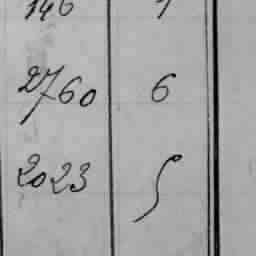 146 1
2760 6
2023 5